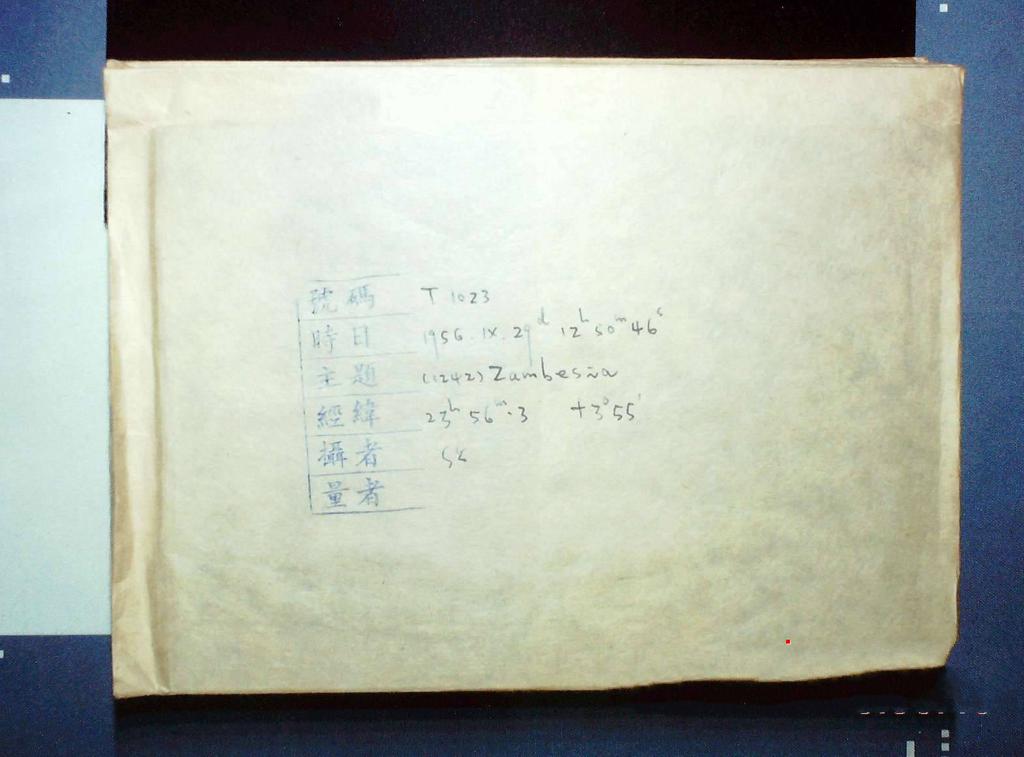 號碼 T 1023
時日 1956.IX.29d 12h50m46s
主題 (1242) Zambesia
經緯 23h56m.3 +3°55'
攝者 SK
量者